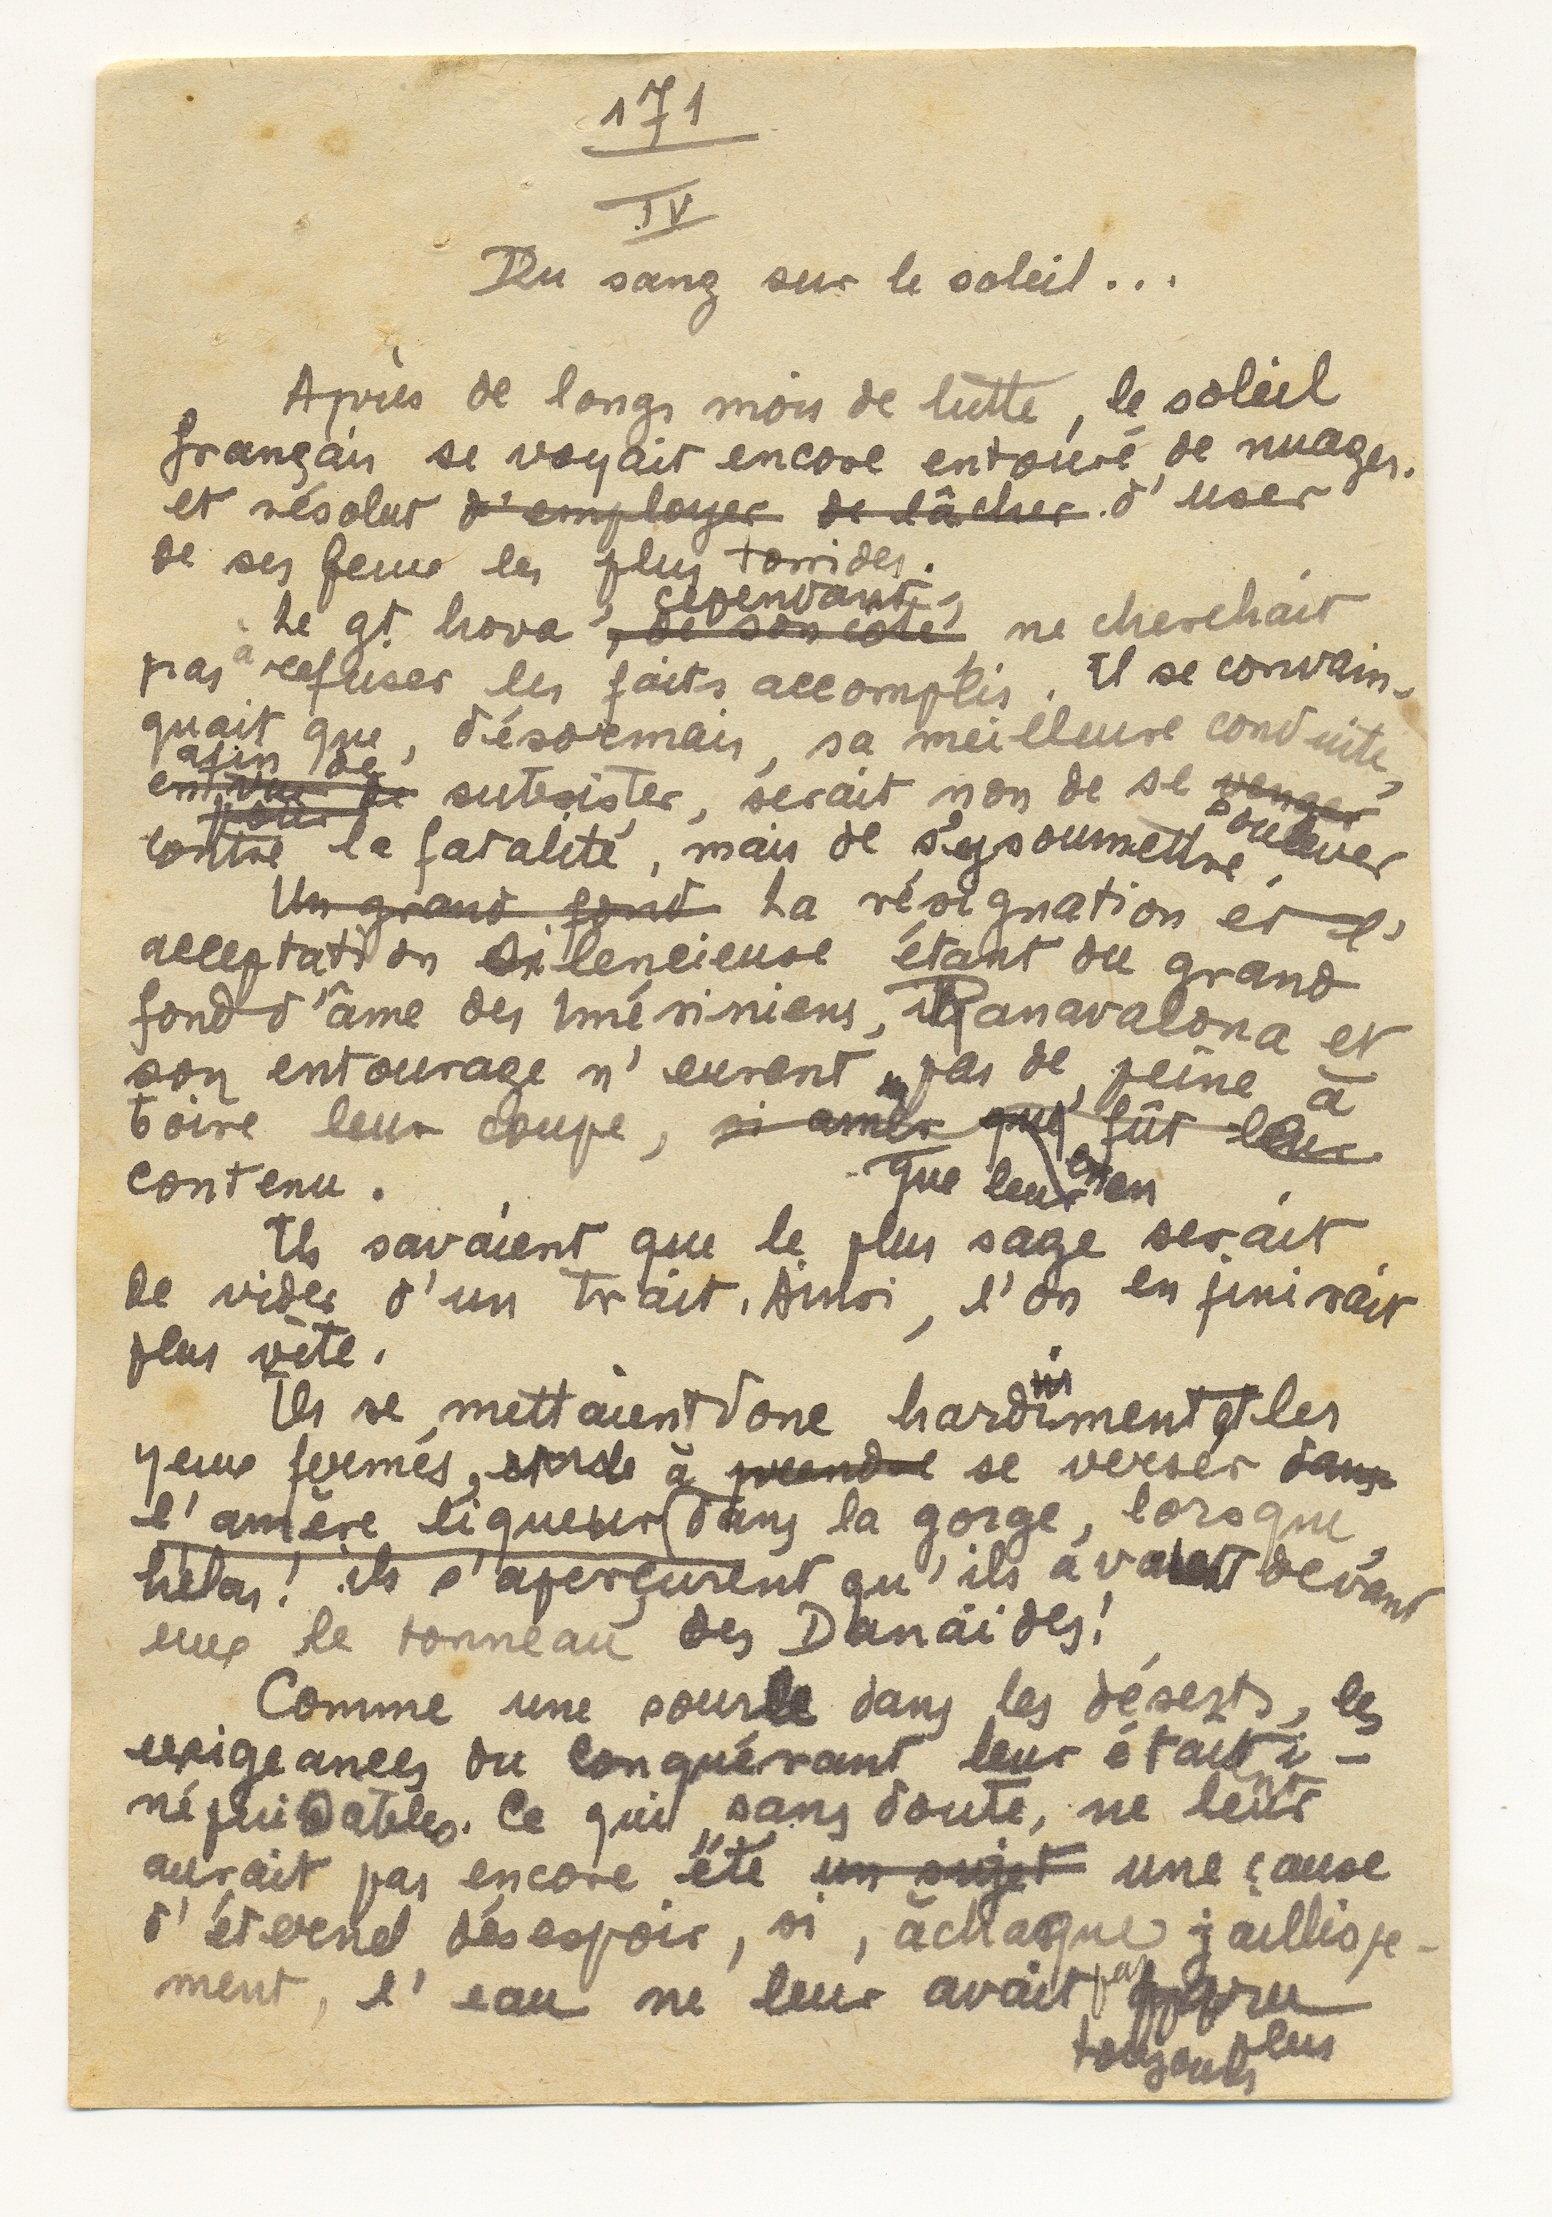 171
IV
Du sang sur le soleil...
Après de longs mois de lutte, le soleil
français se voyait encore entouré de nuages.
et résolut d'employer de lâcher d'user
de ses feux les plus torrides.
cependant,
Le gt. hova, de son côté, ne cherchait
pas à refuser les faits accomplis. Il se convain-
quait que, désormais, sa meilleure conduite,
afin de
en vue de subsister, serait non de se venger
pour soulever
contre la fatalité, mais de s'y soumettre.
Un grand fond La résignation et l'
acceptation silencieuse étant du grand
fond d'âme des Imériniens, Ranavalona et
son entourage n'eurent pas de peine à
boire leur coupe, si amer que fût leur
que leur en
contenu.
Ils savaient que le plus sage serait
de vider d'un trait. Ainsi, l'on en finirait
plus vite.
Ils se mettaient donc hardiment et les
yeux fermés, à prendre se verser dans
l'amère liqueur dans la gorge, lorsque,
hélas! ils s'aperçurent qu'ils avaient devant
eux le tonneau des Danaïdes!
Comme une source dans les déserts, les
exigeances du conquérant leur étaient i-
népuisables. Ce qui, sans doute, ne leur
aurait pas encore été un sujet une cause
d'éternel désespoir, si, à chaque jaillisse-
ment, l'eau ne leur avait pas apparu
toujours plus